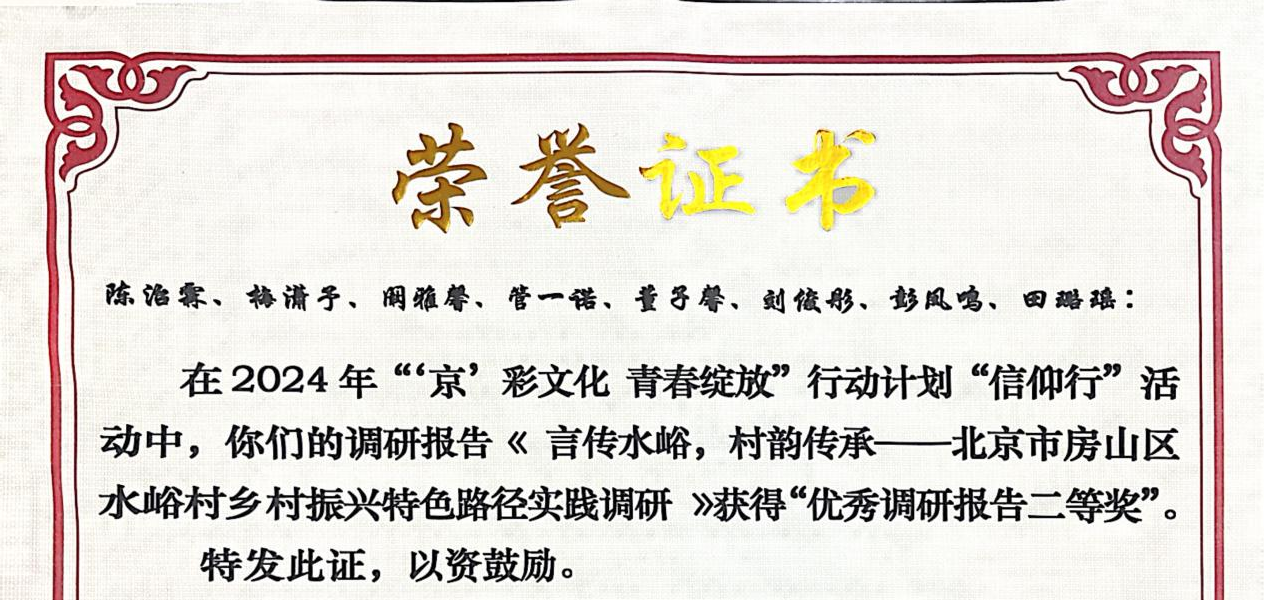 荣誉证书
陈治霖、梅潇予、周雅馨、管一诺、董子馨、刘俊彤、彭凤鸣、田璐瑶：
在2024年“‘京’彩文化 青春绽放”行动计划“信仰行”活
动中，你们的调研报告《 言传水峪，村韵传承——北京市房山区
水峪村乡村振兴特色路径实践调研 》获得“优秀调研报告二等奖”。
特发此证，以资鼓励。